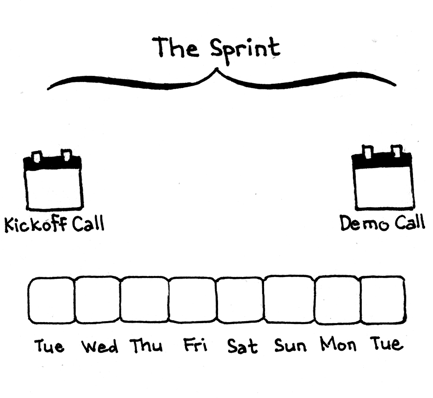 The Sprint
Kickoff Call
Demo Call
Tue Wed Thu Fri Sat Sun Mon Tue